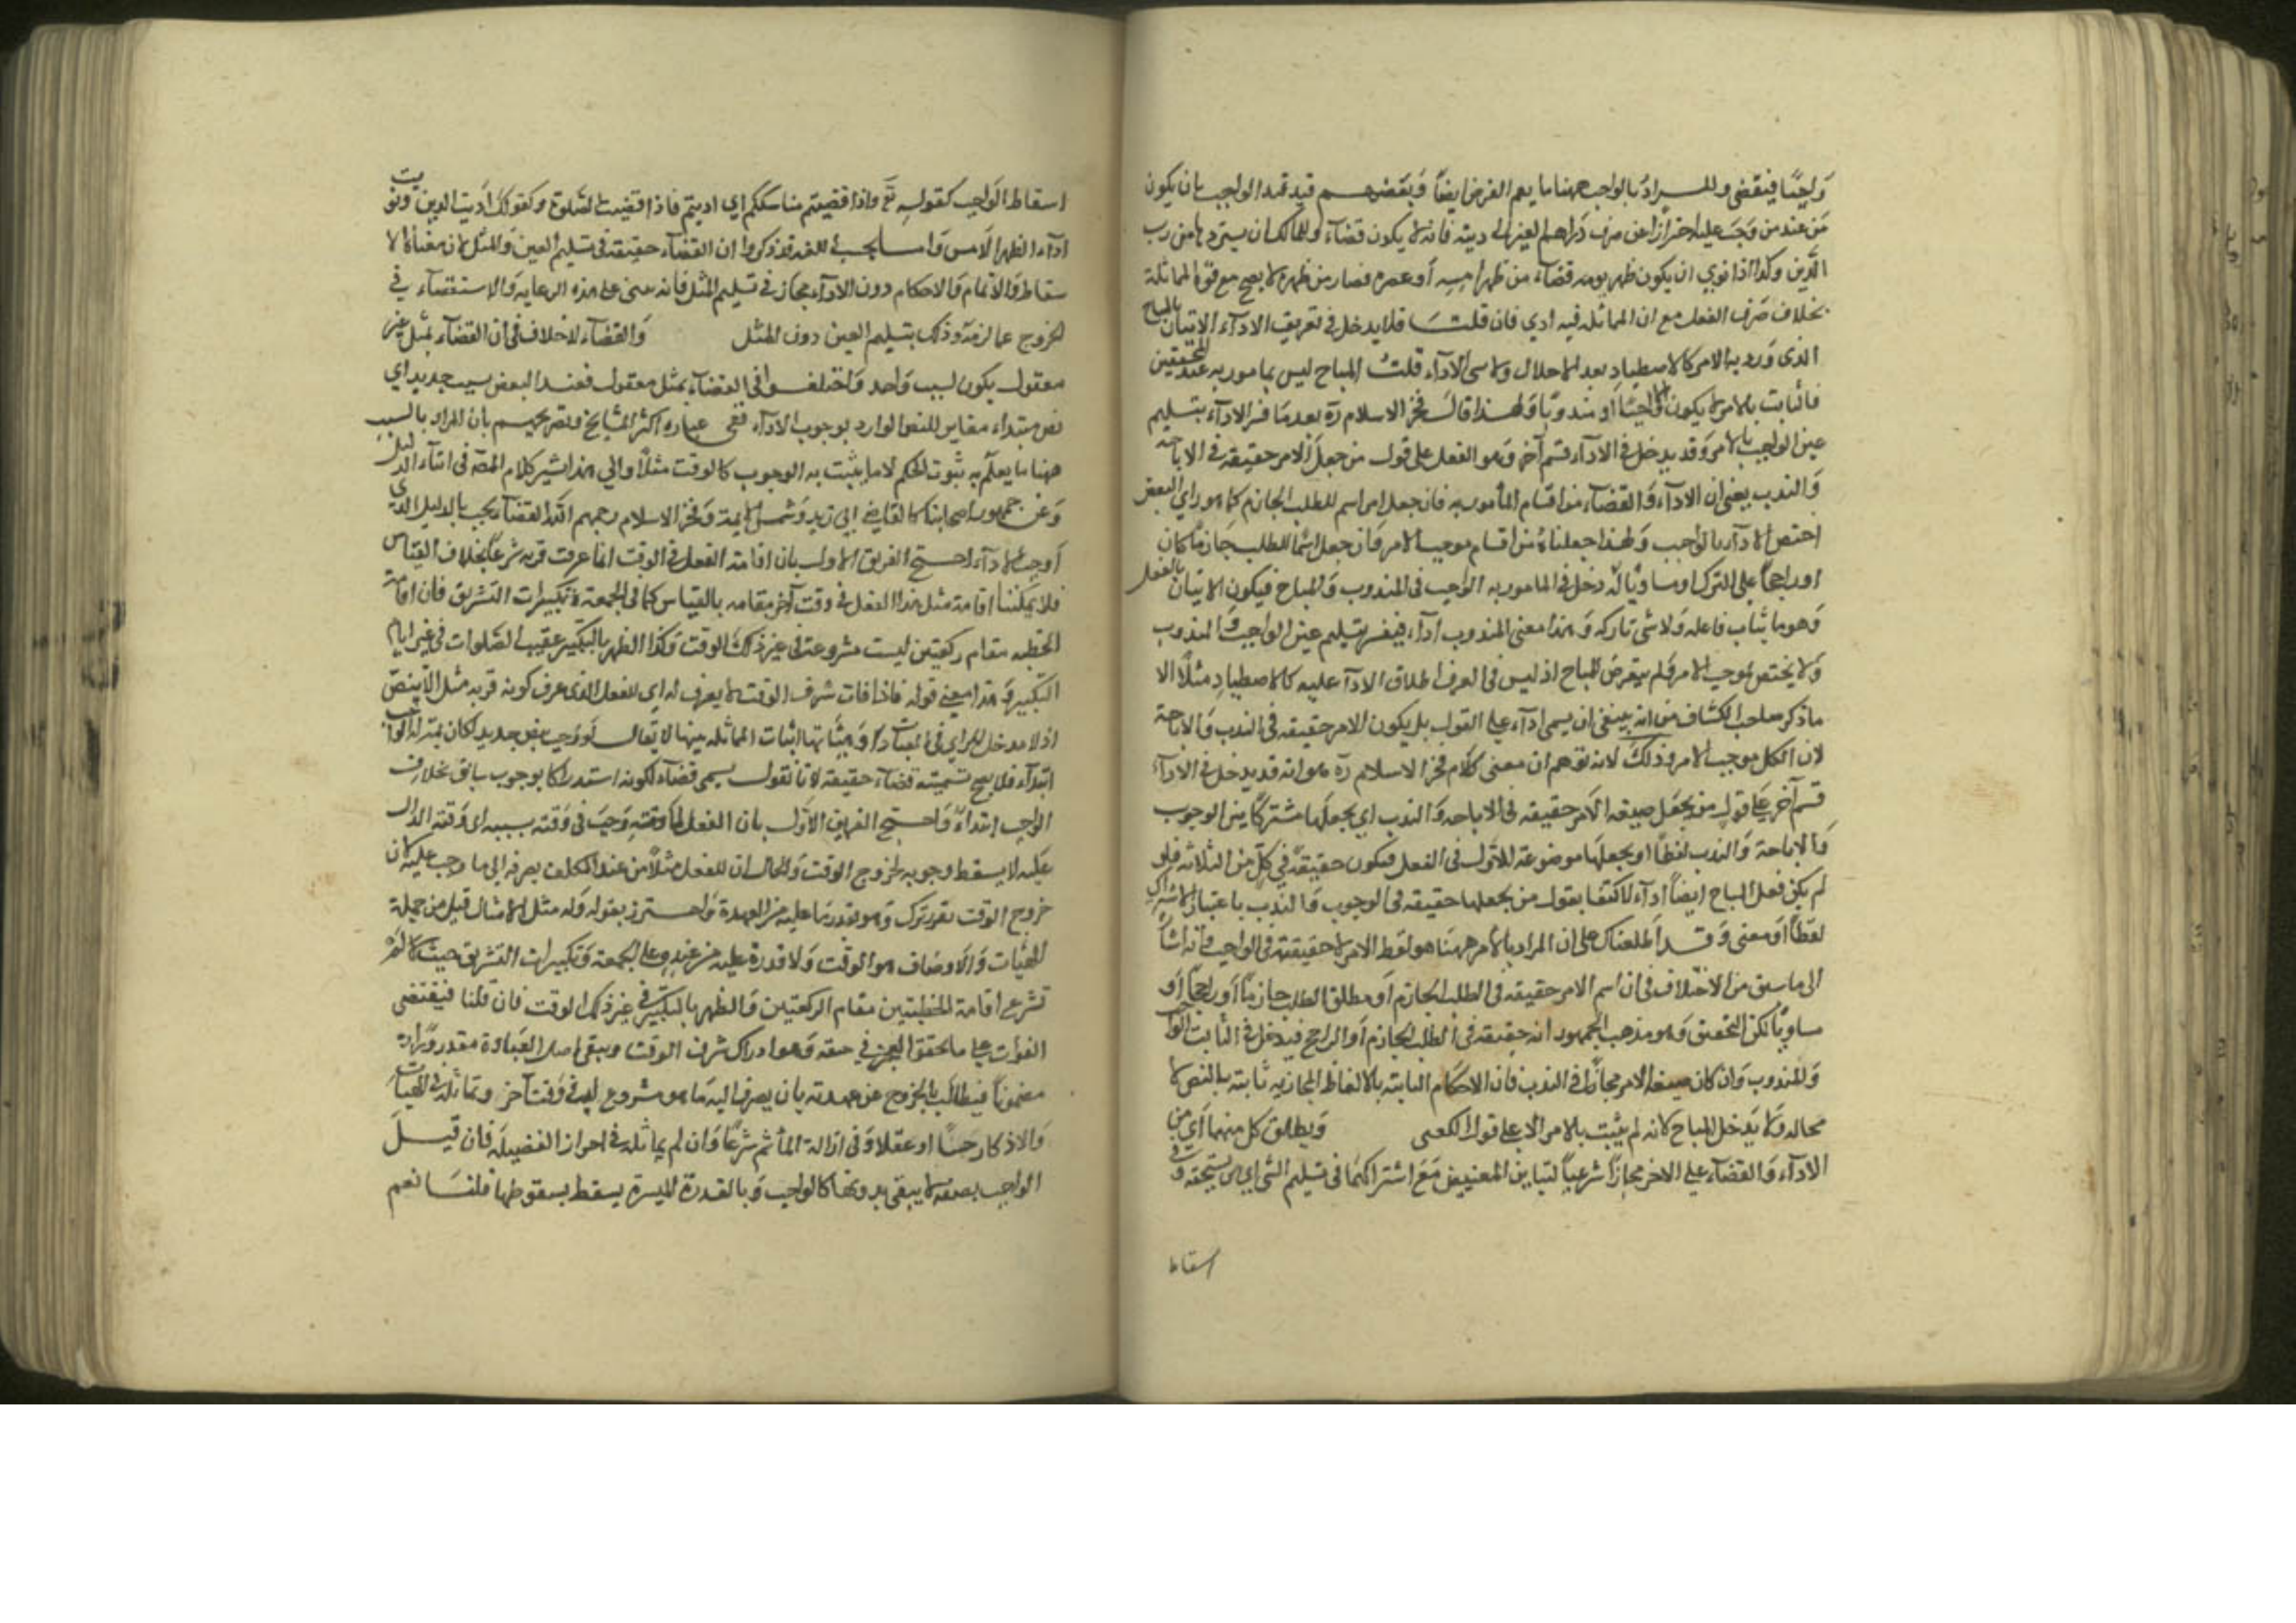 واجبًا فيقضى والمراد بالواجب ههنا ما يعم الفرض ايضًا وبعضهم قيد الواجب بان يكون
من عند من وجب عليه احترازًا عن صرف دراهم الغير الى دينه فانه لا يكون قضاء وللمالك ان يستردها من رب
الدين وكذا اذا نوى ان يكون ظهر يومه قضاء من ظهر امسه او عصره قضاء من ظهره لا يصح مع قوة المماثلة
بخلاف صرف النفل مع ان المماثلة فيه ادنى فان قلت فلا يدخل في تعريف الاداء الاتيان بالمباح
الذى ورد به الامر كالاصطياد بعد الاحلال ولا يسمى الاداء قلت المباح ليس بمامور به عند المحققين
فالثابت بالامر لا يكون الا واجبًا او مندوبًا ولهذا قال فخر الاسلام ره بعدما فسر الاداء بتسليم
عين الواجب بالامر وقد يدخل في الاداء قسم آخر وهو النفل على قول من جعل الامر حقيقة في الاباحة
والندب يعني ان الاداء والقضاء من اقسام المأمور به فان جعل امر اسم للطلب الجازم كما هو راي البعض
اختص الاداء بالواجب ولهذا جعلناه من اقسام موجب الامر وان جعل اسمًا للطلب جازمًا كان
او راجحًا على الترك او مساويًا له دخل في المامور به الواجب والمندوب والمباح فيكون الاتيان بالنفل
وهو ما يثاب فاعله ولا يسئ تاركه وهذا معنى المندوب اداء فيفسر بتسليم عين الواجب او المندوب
ولا يختص بموجب الامر ولم يتعرض للمباح اذ ليس في العرف اطلاق الاداء عليه كالاصطياد مثلًا الا
ما ذكر صاحب الكشاف من انه ينبغي ان يسمى اداء على القول بان يكون الامر حقيقة في الندب والاباحة
لان الكل موجب الامر وذلك لانه توهم ان معنى كلام فخر الاسلام ره هو انه قد يدخل في الاداء
قسم آخر على قول من يجعل صيغة الامر حقيقة في الاباحة والندب اي يجعلها مشتركًا بين الوجوب
والاباحة والندب لفظًا او يجعلها موضوعة للاذن في الفعل فيكون حقيقةً في كلٍّ من الثلاثة فلو
لم يكن فعل المباح ايضًا اداء لاكتفى بقول من يجعلها حقيقة في الوجوب والندب باعتبار الاشتراك
لفظًا او معنى وقد اطلعناك على ان المراد بالامر ههنا هو لفظ الامر لا حقيقته في الواجب فانه اشارة
الى ما سبق من الاختلاف في ان اسم الامر حقيقة في الطلب الجازم او مطلق الطلب جازمًا او راجحًا او
مساويًا لكن التحقيق وهو مذهب الجمهور انه حقيقة في الطلب الجازم او الراجح فيدخل في الثابت الواجب
والمندوب وان كان صيغة الامر مجازًا في الندب فان الاحكام الثابتة بالالفاظ المجازية ثابتة بالنص لا
محالة ولا يدخل المباح لانه لم يثبت بالامر الا على قول الكعبى ويطلق كل منهما اي من
الاداء والقضاء على الاخر مجازًا شرعيًا لتباين المعنيين مع اشتراكهما في تسليم الشئ الى من يستحقه وفي
اسقاط
اسقاط الواجب كقوله تع واذا قضيتم مناسككم اي اديتم فاذا قضيت الصلوة وكقولك اديت الدين ونويت
اداء الظهر الامس واما بحسب اللغة فقد ذكروا ان القضاء حقيقة في تسليم العين والمثل لان معناه الا
سقاط والاتمام والاحكام دون الاداء مجاز في تسليم المثل فانه مبني على شدة الرعاية والاستقصاء في
الخروج عما لزمه وذلك بتسليم العين دون المثل والقضاء لا خلاف في ان القضاء بمثل غير
معقول يكون بسبب واحد واختلفوا في القضاء بمثل معقول فعند البعض بسبب جديد اي
نص مبتداء مغاير للنص الوارد بوجوب الاداء ففي عبارة اكثر المشايخ وتصريحهم بان المراد بالسبب
ههنا ما يعلم به ثبوت الحكم لا ما يثبت به الوجوب كالوقت مثلًا والى هذا اشير كلام المصـ في اثناء الدليل
وعن جمهور اصحابنا كالقاضي ابي زيد وشمس الايمة وفخر الاسلام رحمهم الله القضاء يجب بالدليل الذي
اوجب الاداء احتج الفريق الاول بان اقامة الفعل في الوقت انما عرفت قربة شرعًا بخلاف القياس
فلا يمكننا اقامة مثل هذا الفعل في وقت آخر مقامه بالقياس كما في الجمعة وتكبيرات التشريق فان اقامة
الخطبة مقام ركعتين ليست مشروعة في غير ذلك الوقت وكذا الظهر بالتكبير عقيب الصلوات في غير ايام
التكبير وهذا معنى قوله فاذا فات شرف الوقت لا يعرف له اي للفعل الذي عرف كونه قربة مثل الا بنص
اذ لا مدخل للراي في مقادير العبادات وهيئاتها واثبات المماثلة بينها لا يقال لو وجب بنص جديد لكان بمنزلة الواجب
ابتداء فلا يصح تسميته قضاء حقيقة لانا نقول يسمى قضاء لكونه استدراكا بوجوب سابق بخلاف
الواجب ابتداءً واحتج الفريق الاول بان الفعل لما وجب في وقته بسببه اي وقته الدال
عليه لا يسقط وجوبه بخروج الوقت والحال ان للفعل مثلًا من عند المكلف يصرفه الى ما وجب عليه لان
خروج الوقت تقرر ترك وهو يقرر ما عليه من العهدة واحترز بقوله وله مثل الامثال قبل من جملة
الهيئات والاوصاف هو الوقت ولا قدرة عليه من عنده وعلى الجمعة وتكبيرات التشريق حيث لم
تشرع اقامة الخطبتين مقام الركعتين والظهر بالتكبير في غير ذلك الوقت فان قلنا فيقتضى
الفوات على ما تحقق العجز في حقه وهو ادراك شرف الوقت ويبقى اصل العبادة مقدورًا له
مضمونًا فيطالب بالخروج عن عهدته بان يصرف اليه ما هو مشروع له في وقت آخر ويماثله في الهيات
والاذكار حسًّا او عقلا وفي ازالة المأثم شرعًا وان لم يماثله في احراز الفضيلة فان قيل
الواجب بصفة لا يبقى بدونها كالواجب بالقدرة الميسرة يسقط بسقوطها قلنا نعم